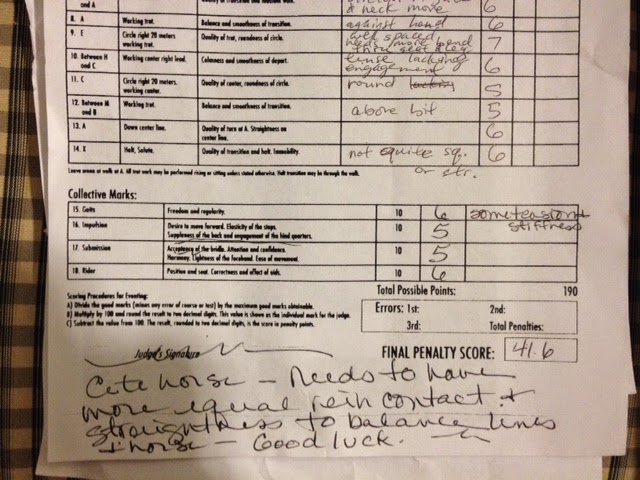 and A
& neck move 6
8. A Working trot. Balance and smoothness of transition. against hand 6
9. E Circle right 20 meters working trot. Quality of trot, roundness of circle. well spaced needs more bend thru seat & leg 7
10. Between H and C Working canter right lead. Calmness and smoothness of depart. tense lacking engagement 6
11. C Circle right 20 meters. working canter. Quality of canter, roundness of circle. round 5
12. Between M and B Working trot. Balance and smoothness of transition. above bit 5
13. A Down center line. Quality of turn at A. Straightness on center line. 6
14. X Halt, Salute. Quality of transition and halt. Immobility. not quite sq. or str. 6
Leave arena at walk at A. All trot work may be performed rising or sitting unless stated otherwise. Halt transition may be through the walk.
Collective Marks:
15. Gaits Freedom and regularity. 10 6 some tension + stiffness
16. Impulsion Desire to move forward. Elasticity of the steps. Suppleness of the back and engagement of the hind quarters. 10 5
17. Submission Acceptance of the bridle. Attention and confidence. Harmony. Lightness of the forehand. Ease of movement. 10 5
18. Rider Position and seat. Correctness and effect of aids. 10 6
Total Possible Points: 190
Scoring Procedures for Eventing:
A) Divide the good marks (minus any error of course or test) by the maximum good marks obtainable.
B) Multiply by 100 and round the result to two decimal digits. This value is shown as the individual mark for the judge.
C) Subtract the value from 100. The result, rounded to two decimal digits, is the score in penalty points.
Errors: 1st: 2nd:
3rd: Total Penalties:
Judge's Signature
FINAL PENALTY SCORE: 41.6
Cute horse - Needs to have
more equal rein contact +
straightness to balance lines
+ horse - Good luck.